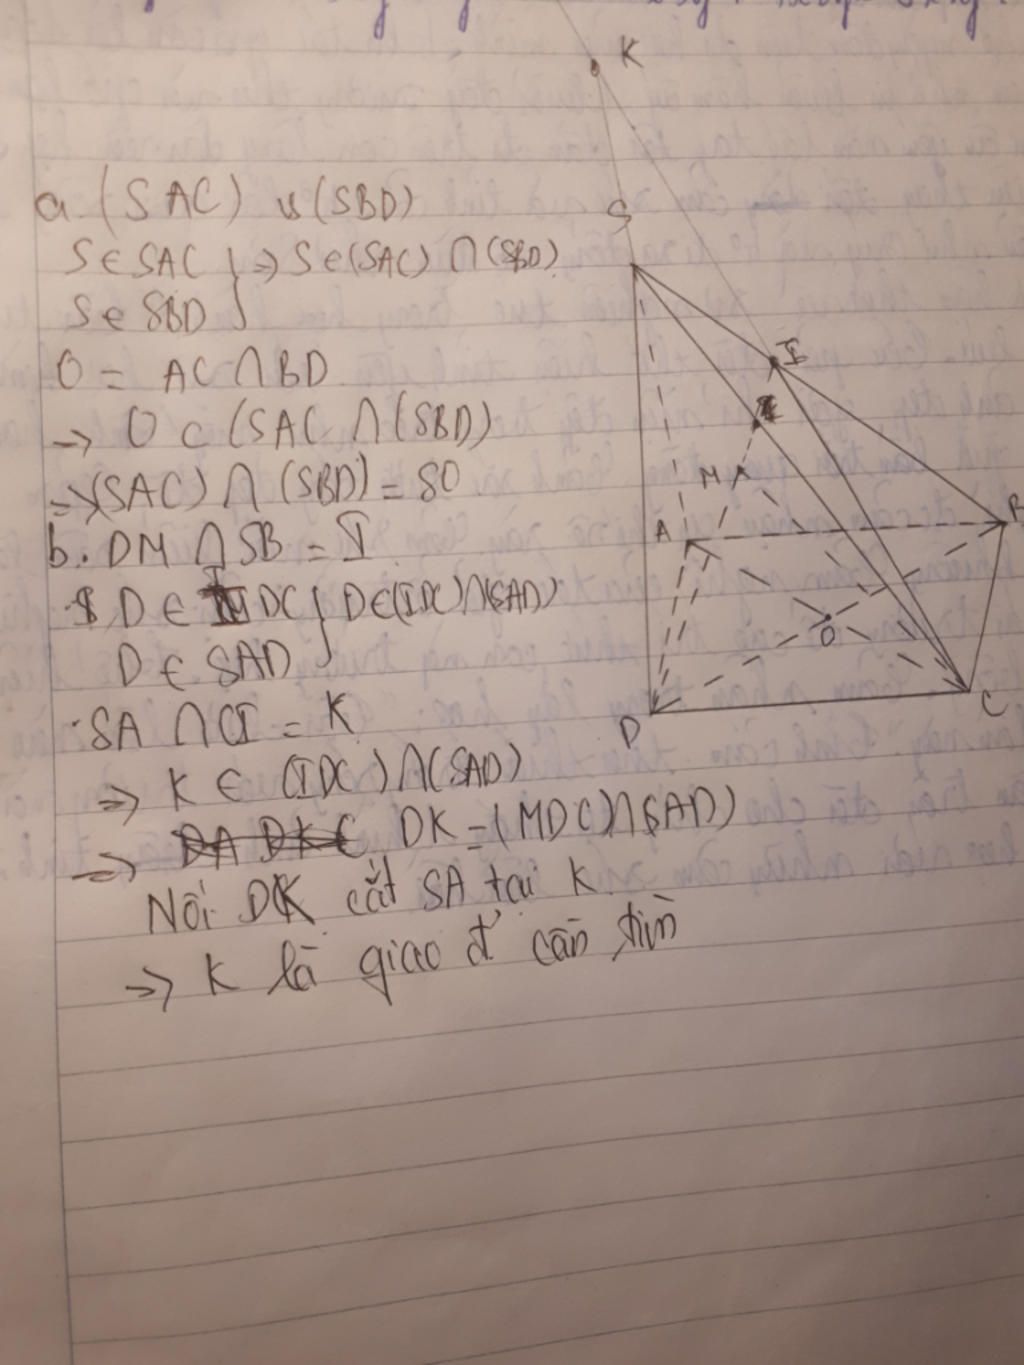 K
a. (SAC) vs (SBD)
S
S ∈ SAC } => S ∈ (SAC) ∩ (SBD)
S ∈ SBD
O = AC ∩ BD
I
-> O ⊂ (SAC ∩ (SBD)
M
=> (SAC) ∩ (SBD) = SO
A
B
b. DM ∩ SB = I
D ∈ IDC } D ∈ (IDC) ∩ (SAD)
O
D ∈ SAD
D
C
SA ∩ CI = K
=> K ∈ (IDC) ∩ (SAD)
=> DK = (MDC) ∩ (SAD)
Nối DK cắt SA tại K
=> K là giao đ' cần tìm